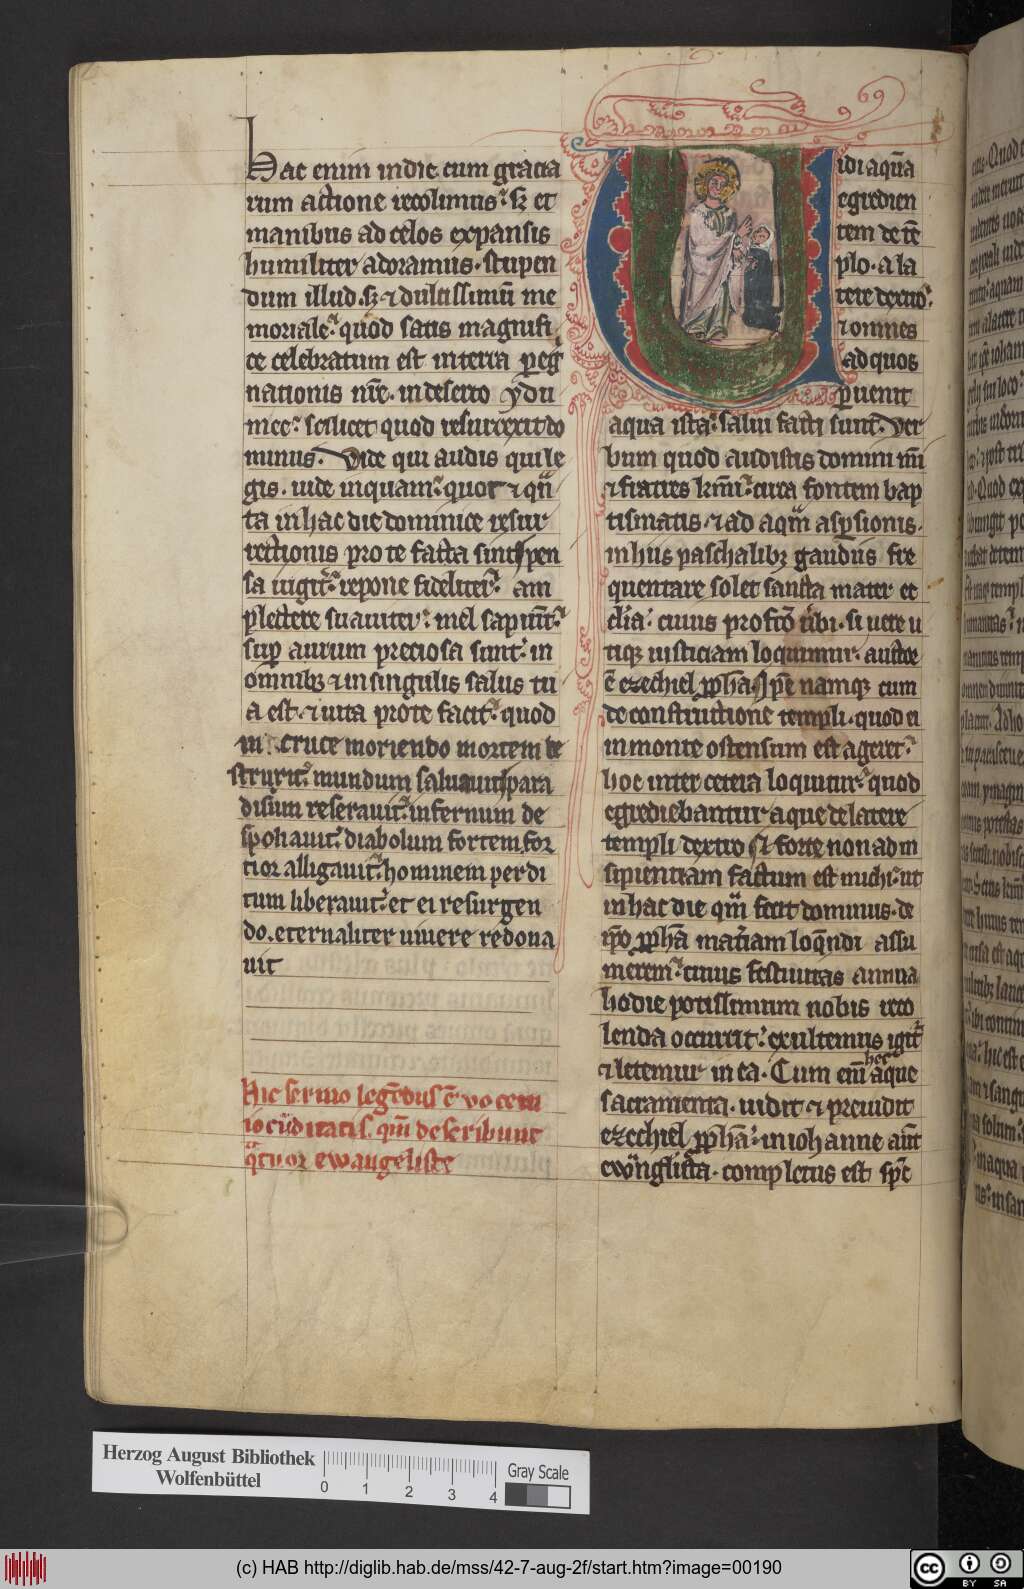 hac enim in die cum gracia
rum actione recolimus. sꝫ et
manibus ad celos expansis
humiliter adoramus. stupen
dum illud. sꝫ ⁊ dulcissimū me
moriale. quod satis magnifi
ce celebratum est in terra peg̃
nationis nr̄e. in deserto ydu
mee. scilicet quod resurrexit do
minus. Vide qui audis qui le
gis. uide inquam. quot ⁊ qn̄
ta in hac die dominice resur
rectionis pro te facta sint. pen
sa uigit̉. repone fideliter. am
plectere suauiter. mel sapiūt.
suꝑ aurum preciosa sunt. in
omnibꝫ ⁊ in singulis salus tu
a est. ⁊ uita pro te facit. quod
in cruce moriendo mortem de
struxit. mundum saluauit. para
disum reserauit. infernum de
spoliauit. diabolum fortem for
tior alligauit. hominem perdi
tum liberauit. et ei resurgen
do. eternaliter uiuere redona
uit
Hic sermo legēdus ē
q̈tuor ewangeliste
Uidi aquā
egredien
tem de tē
plo. a la
tere dextro.
⁊ omnes
ad quos
ꝑuenit
aqua ista. salui facti sunt. Ver
bum quod audistis domini mī
⁊ fratres kmī. circa fontem bap
tismatis. ⁊ ad aqm̄ aspersionis.
in hiis paschalibꝫ gaudiis fre
quentare solet sancta mater ec
clīa. cuius profcō tibi. si uere u
tiqꝫ iusticiam loquimur. auctor
ē ezechiel ꝓphā. Ipse namqꝫ cum
de constructione templi. quod ei
in monte ostensum est ageret.
hoc inter cetera loquitur. quod
egrediebantur aque de latere
templi dextro. Et forte non ad in
sipientiam factum est michi. ut
in hac die qm̄ fecit dominus. de
ip̄o ꝓphā mat̉iam loq̄ndi assu
merem. cuius festiuitas annua
hodie potissimum nobis reco
lenda occurrit. exultemus igit̉
⁊ letemur in ea. Cum em̄ hec aque
sacramenta. uidit ⁊ preuidit
ezechiel ꝓphā. in iohanne aūt
ewāglista. completus est spc̄
69
Herzog August Bibliothek
Wolfenbüttel
0 1 2 3 4
Gray Scale
(c) HAB http://diglib.hab.de/mss/42-7-aug-2f/start.htm?image=00190
cc BY SA